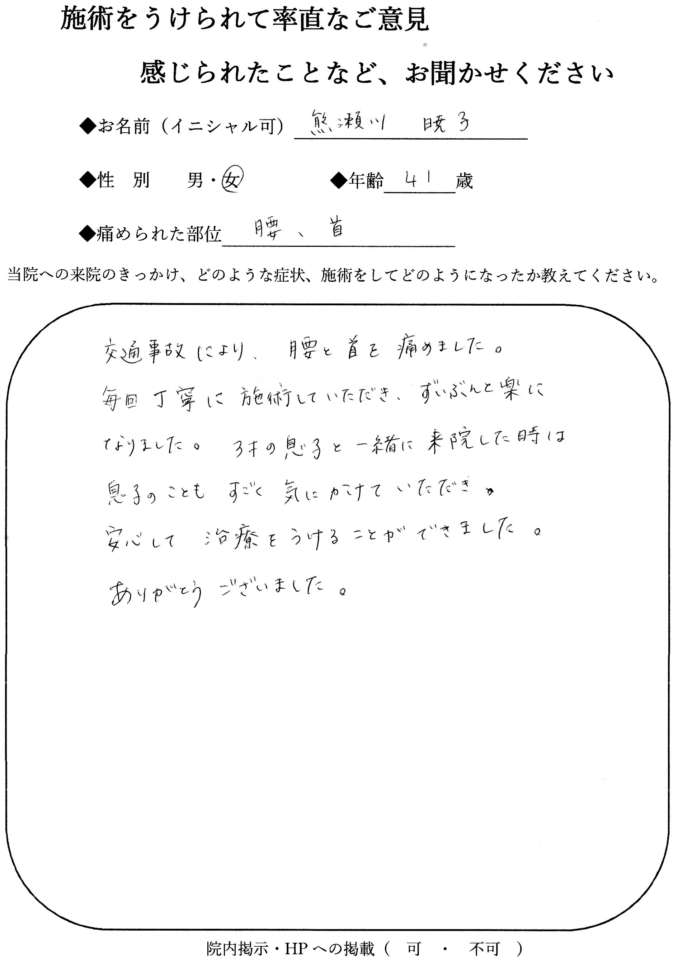 施術をうけられて率直なご意見
感じられたことなど、お聞かせください
◆お名前（イニシャル可） 熊瀬川 暁子
◆性 別 男・女 ◆年齢 41 歳
◆痛められた部位 腰、首
当院への来院のきっかけ、どのような症状、施術をしてどのようになったか教えてください。
交通事故により、腰と首を痛めました。
毎回丁寧に施術していただき、ずいぶんと楽に
なりました。 3才の息子と一緒に来院した時は
息子のことも すごく 気にかけていただき、
安心して 治療をうけることができました。
ありがとうございました。
院内掲示・HPへの掲載（ 可 ・ 不可 ）